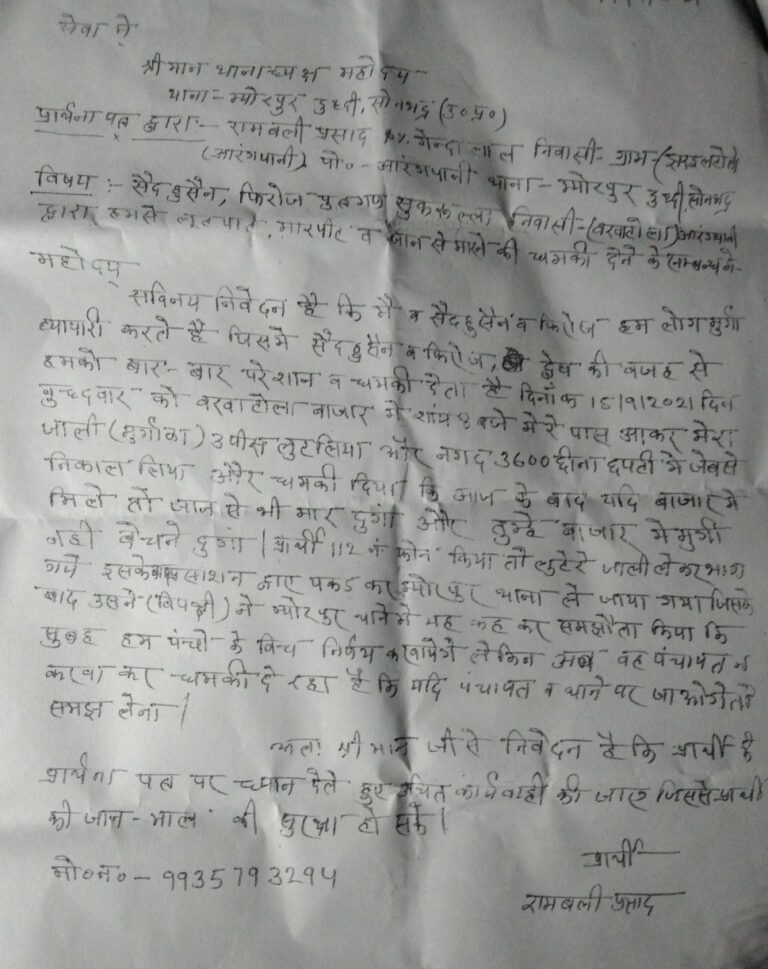 सेवा में
श्रीमान थानाध्यक्ष महोदय
थाना:- म्योरपुर दुध्दी, सोनभद्र (उ०प्र०)
प्रार्थना पत्र द्वारा:- रामबली प्रसाद गेन्दा लाल निवासी- ग्राम-
(आरंगपानी) पो०- आरंगपानी थाना- म्योरपुर दुध्दी सोनभद्र
विषय:- सैदहुसैन, फिरोज पुत्रगण निवासी- आरंगपानी
द्वारा हमसे लूटपाट, मारपीट व जान से मारने की धमकी देने के सम्बन्ध मे-
महोदय
सविनय निवेदन है कि मै व सैदहुसैन व फिरोज हम लोग मुर्गा
व्यापारी करते है जिसमे सैदहुसैन व फिरोज, द्वेष की वजह से
हमको बार- बार परेशान व धमकी देता है दिनांक 15/9/2021 दिन
बुध्दवार को बरवाटोला बाजार मे शाय 8 बजे मेरे पास आकर मेरा
जाली (मुर्गाका) 3 पीस लुट लिया और नगद 3600 छीना छपटी मे जेबसे
निकाल लिया और धमकी दिया कि आज के बाद यदि बाजार मे
मिले तो जान से भी मार दुगां और तुम्हे बाजार मे मुर्गा
नही बेचने दुगां | प्रार्थी 112 नं फोन किया तो लुटेरे जाली लेकर भाग
गये साशन द्वारा पकड कर म्योरपुर थाना ले जाया गया जिसके
बाद उसने (विपक्षी) ने म्योरपुर थाने मे यह कह कर समझौता किया कि
सुबह हम पंचो के बिच निर्णय करवायेगे लेकिन अब वह पंचायत न
करवा कर धमकी दे रहा है कि यदि पंचायत व थाने पर जाओगे तो
समझ लेना |
अतः श्री मान जी से निवेदन है कि प्रार्थी के
प्रार्थना पत्र पर ध्यान देते हुए उचित कार्यवाही की जाए जिससे प्रार्थी
की जान-माल की सुरक्षा हो सके |
प्रार्थी
मो०न०- 9935793294
रामबली प्रसाद